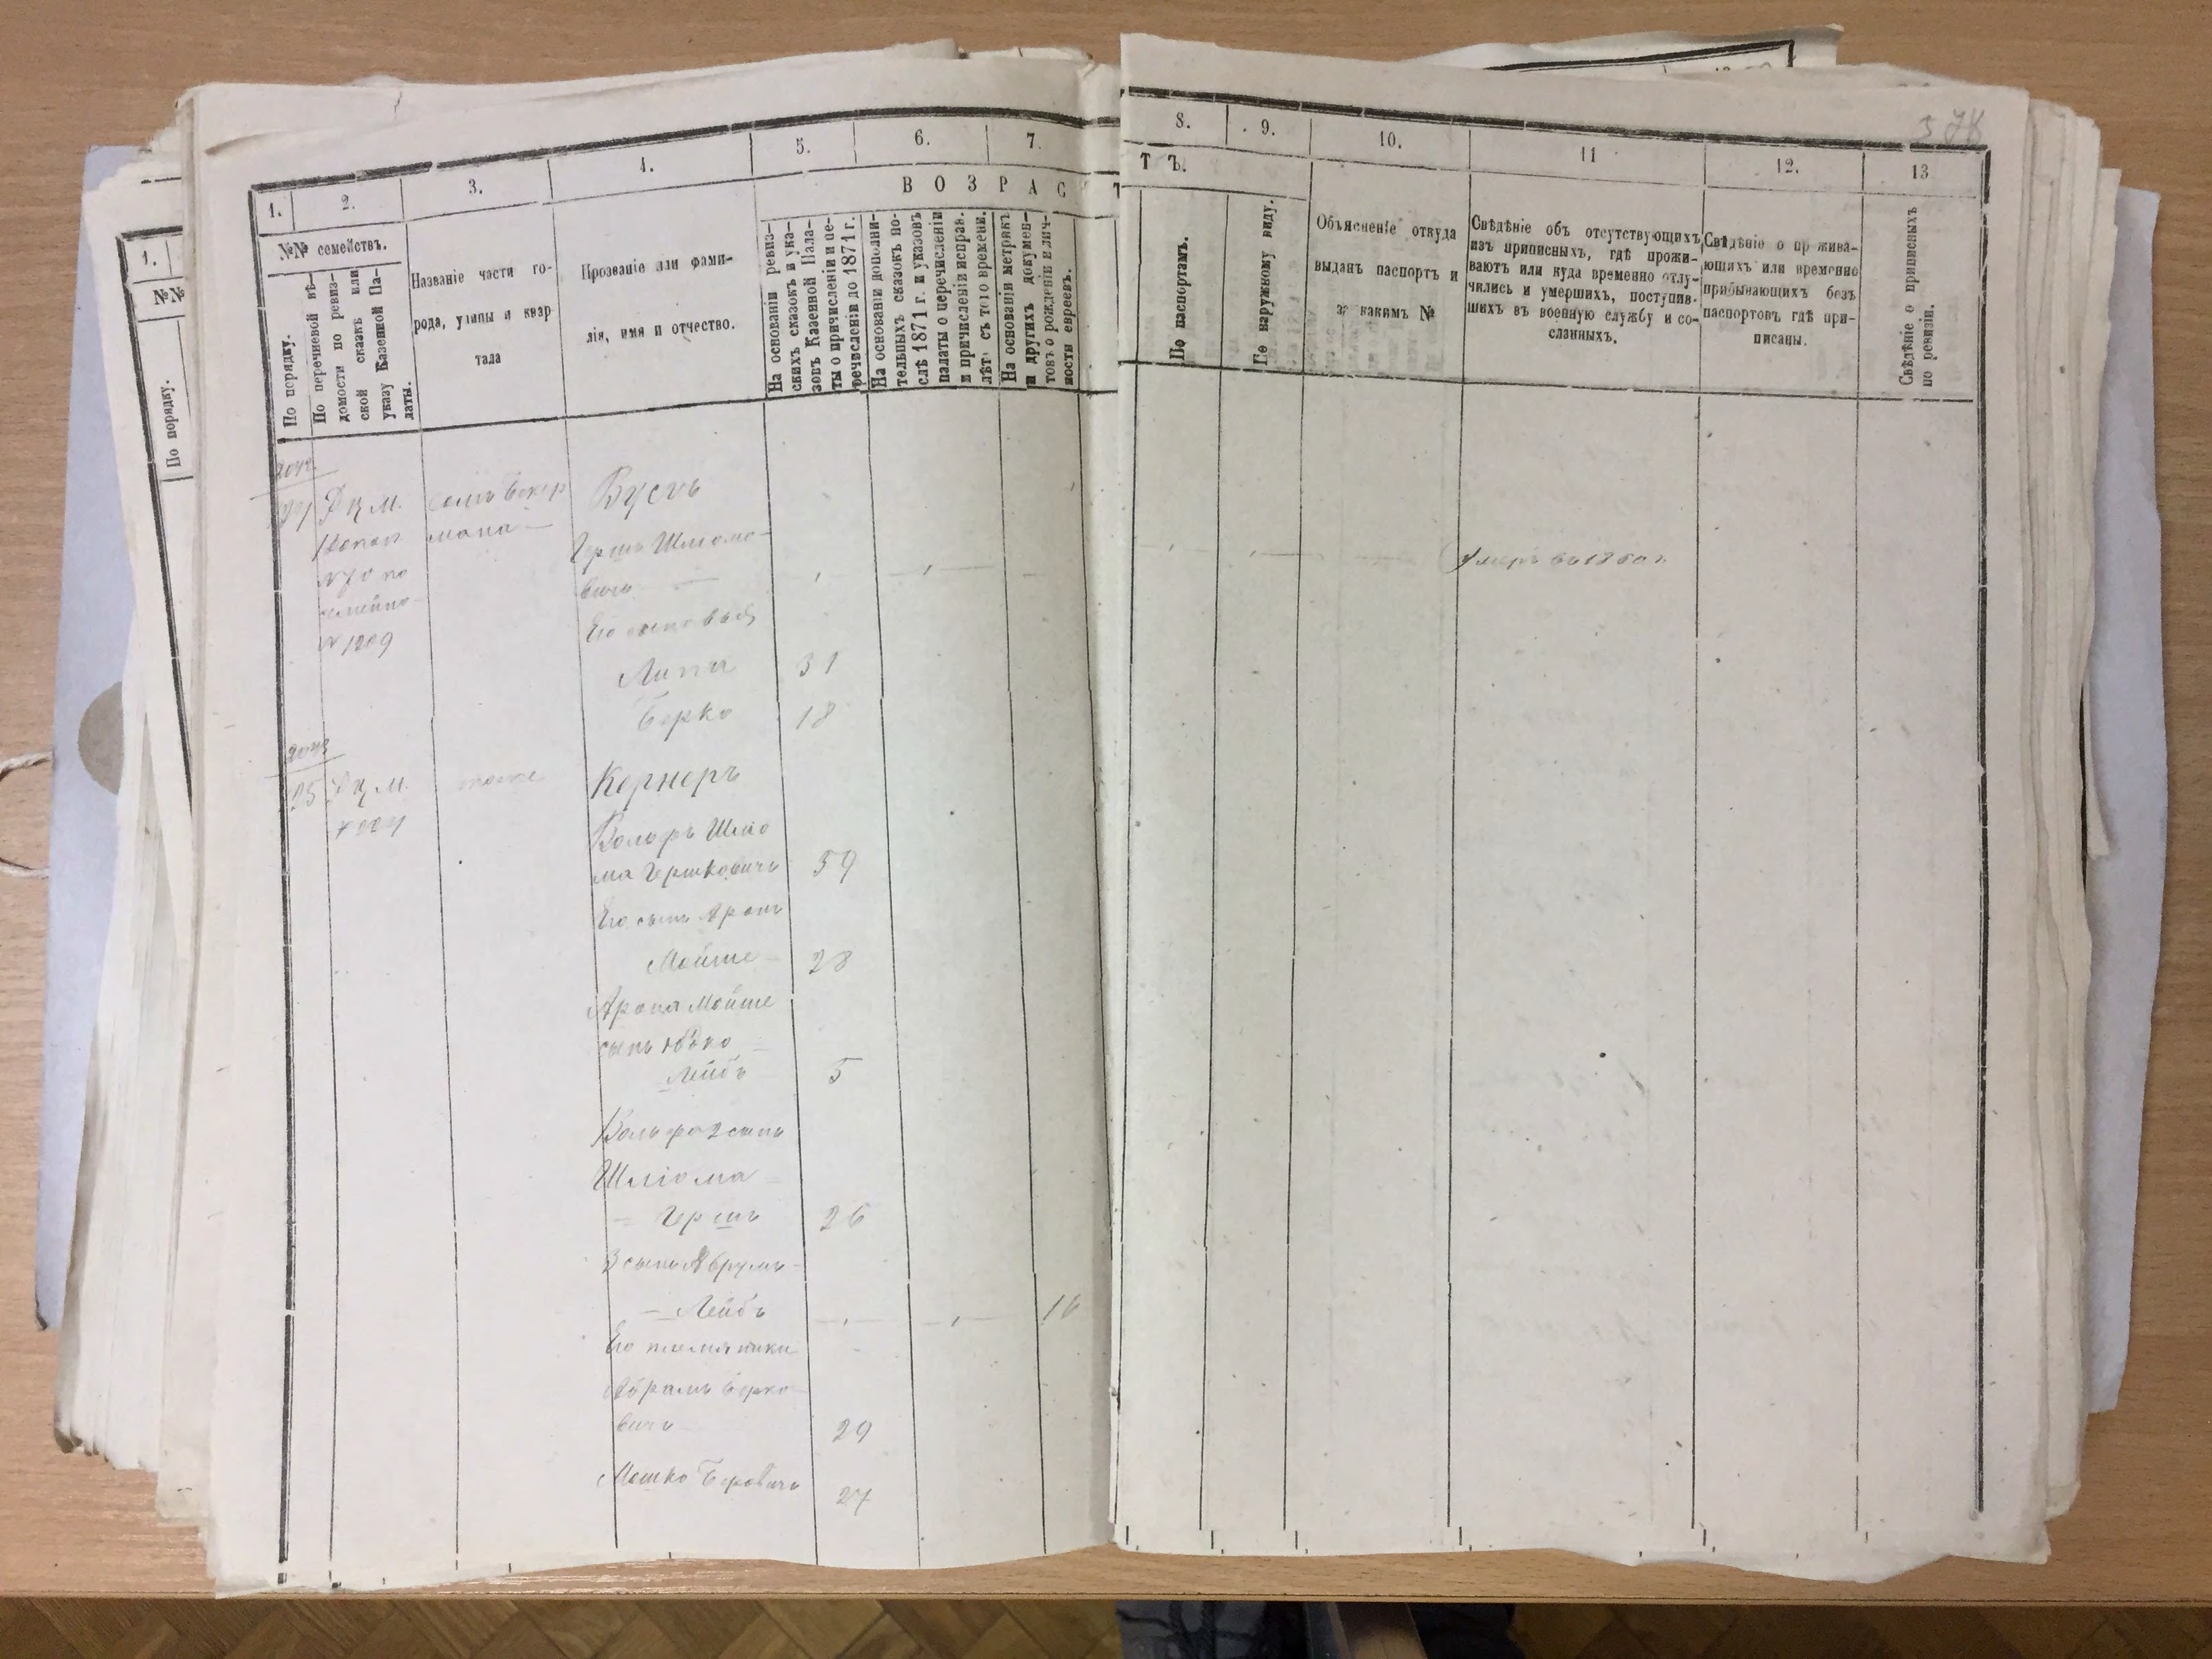 378
1.
2.
3.
4.
5.
6.
7.
8.
9.
10.
11
12.
13
В О З Р А С Т Ъ.
№№ семействъ.
По порядку.
По перечневой вѣ-
домости по ревиз-
ской сказкѣ или
указу Казенной Па-
латы.
Названіе части го-
рода, улицы и квар-
тала
Прозваніе или фами-
лія, имя и отчество.
На основаніи ревиз-
скихъ сказокъ и ука-
зовъ Казенной Пала-
ты о причисленіи и пе-
речисленіи до 1871 г.
На основаніи дополни-
тельныхъ сказокъ по-
слѣ 1871 г. и указовъ
палаты о перечисленіи
и причисленіи исправ.
лѣтъ съ того времени.
На основаніи метрикъ
и другихъ докумен-
товъ о рожденіи и лич-
ности евреевъ.
По паспортамъ.
По наружному виду.
Объясненіе откуда
выданъ паспортъ и
за какимъ №
Свѣдѣніе объ отсутствующихъ
изъ приписныхъ, гдѣ прожи-
ваютъ или куда временно отлу-
чились и умершихъ, поступив-
шихъ въ военную службу и со-
сланныхъ.
Свѣдѣніе о прожива-
ющихъ или временно
прибывающихъ безъ
паспортовъ гдѣ при-
писаны.
Свѣдѣніе о приписныхъ
по ревизіи.
1.
№№
По порядку.
Вусъ
Гершъ Шліомо-
вичъ
Умеръ въ 1860 г.
Его сыновья
№ 1209
Липа 31
Берко 18
25 тоже Кернеръ
Вольфъ Шліо
ма Гершковичъ 59
Его сынъ Аронъ
Мойше 28
Арона Мойше
сынъ
Лейбъ 5
Вольфа 2 сынъ
Шліома
Гершъ 26
3 сынъ Аврумъ
Лейбъ 16
Его племянники
Абрамъ Берко-
вичъ 29
Мошко Беровичъ 27